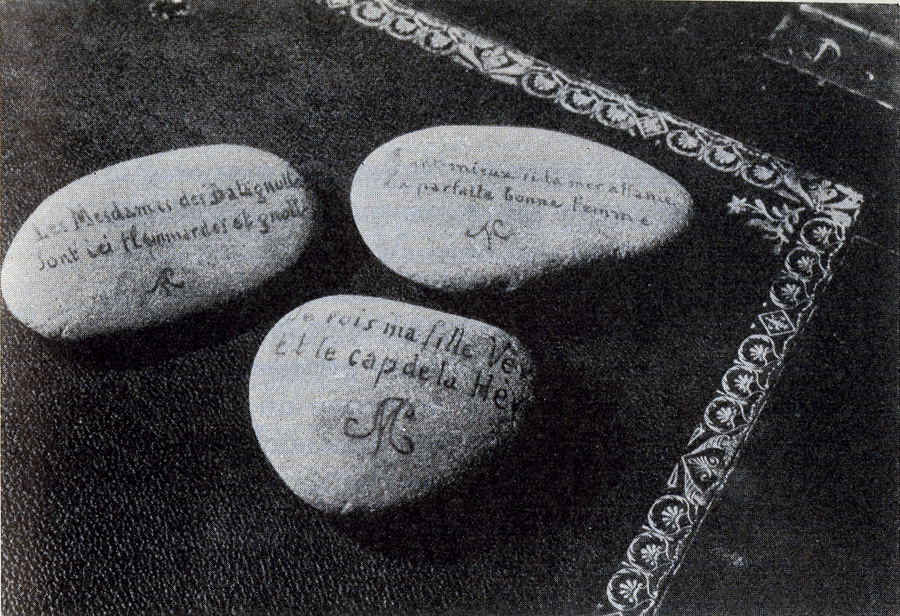 Les Mesdames des Batignolle
Sont ici flemmardes et gnoll
mieux si la mer affame
La parfaite bonne femme
Je vois ma fille Vér
et le cap de la Hèv